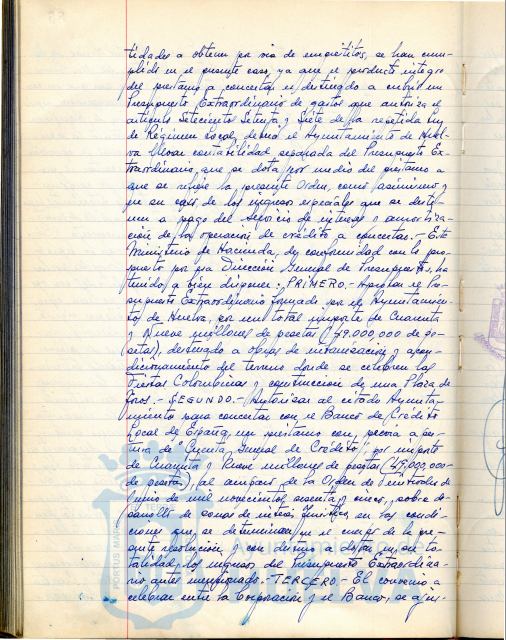 tidades a obtener por vía de empréstitos, se han cum-
plido en el presente caso, ya que el producto íntegro
del préstamo a concertar es destinado a cubrir un
Presupuesto Extraordinario de gastos que autoriza el
artículo Setecientos Setenta y Siete de la repetida Ley
de Régimen Local, debiendo el Ayuntamiento de Huel-
va llevar contabilidad separada del Presupuesto Ex-
traordinario, que se dota por medio del préstamo a
que se refiere la presente Orden, como asimismo
que en caso de los ingresos especiales que se desti-
nen a pago del servicio de intereses o amortiza-
ción de la operación de crédito a concertar.- Este
Ministerio de Hacienda, de conformidad con lo pro-
puesto por esa Dirección General de Presupuestos, ha
tenido a bien disponer: PRIMERO.- Aprobar el Pre-
supuesto Extraordinario formado por el Ayuntamien-
to de Huelva, por un total importe de Cuarenta
y Nueve millones de pesetas (49.000.000 de pe-
setas), destinado a obras de urbanización y acon-
dicionamiento del terreno donde se celebren las
Fiestas Colombinas y construcción de una Plaza de
Toros.- SEGUNDO.- Autorizar al citado Ayunta-
miento para concertar con el Banco de Crédito
Local de España, un préstamo con previa aper-
tura de "Cuenta General de Crédito", por importe
de Cuarenta y Nueve millones de pesetas (49.000.000-
de pesetas), al amparo de la Orden de veintiuno de
junio de mil novecientos sesenta y cinco, sobre de-
sarrollo de zonas de interés turístico, en las condi-
ciones que se determinan en el cuerpo de la pre-
sente resolución y con destino a dotar, en su to-
talidad, los ingresos del Presupuesto Extraordina-
rio antes mencionado.- TERCERO.- El convenio a
celebrar entre la Corporación y el Banco, se ajus-
PORTUS MARIS